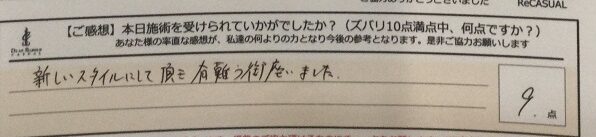 ReCASUAL
【ご感想】本日施術を受けられていかがでしたか？（ズバリ10点満点中、何点ですか？）
あなた様の率直な感想が、私達の何よりの力となり今後の参考となります。是非ご協力お願いします
新しいスタイルにして頂き有難う御座いました。
9.点